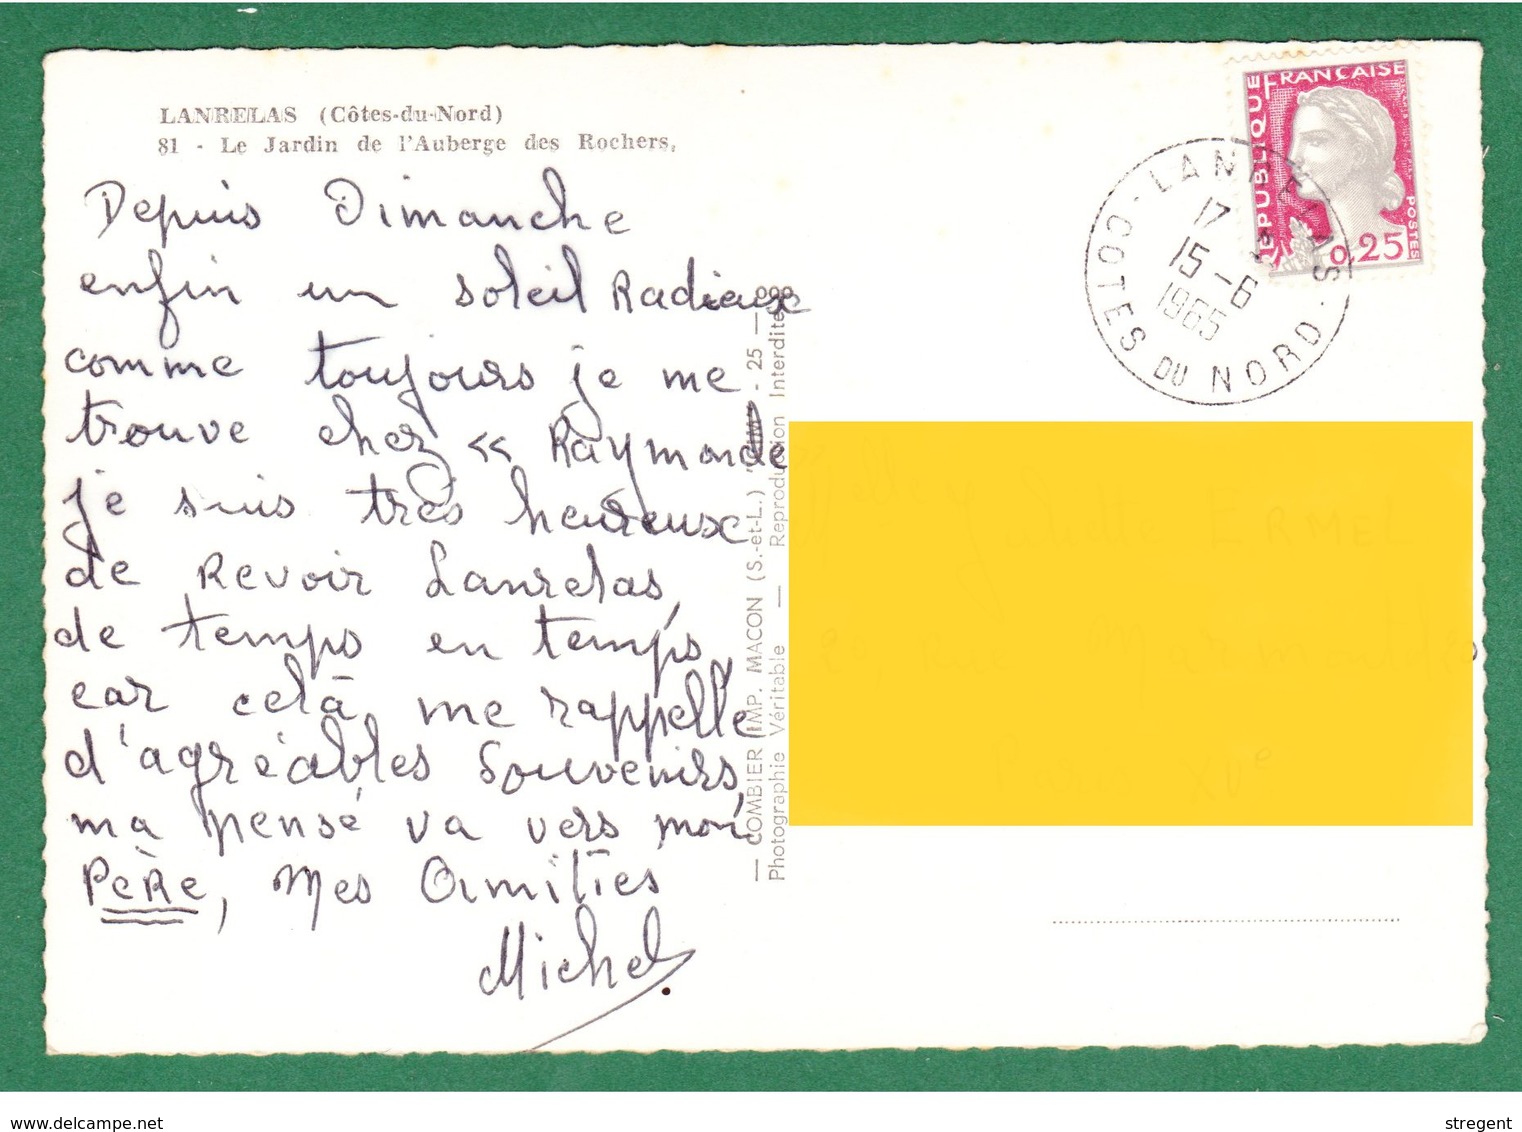 LANRELAS (Côtes-du-Nord)
81 - Le Jardin de l'Auberge des Rochers.
Depuis Dimanche
enfin un soleil Radieux
comme toujours je me
trouve chez « Raymonde
je suis très heureuse
de Revoir Lanrelas,
de temps en temps,
car celà me rappelle
d'agréables Souvenirs,
ma pensé va vers mon
PèRe, Mes Amitiés
Michel
— COMBIER IMP. MACON (S.-et-L.) "CIM" - 25 —
Photographie Véritable — Reproduction Interdite
REPUBLIQUE FRANÇAISE
POSTES
0,25
LANRELAS
17
15-6
1965
COTES DU NORD
Paris XVe
www.delcampe.net
stregent